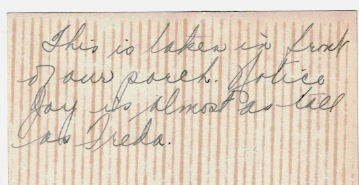 This is taken in front
of our porch. Notice
Joy is almost as tall
as Freda.